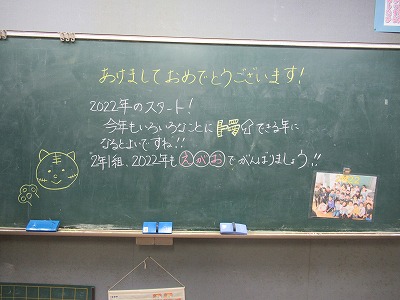 あけましておめでとうございます!
2022年のスタート!
今年もいろいろなことに できる年に
なるとよいですね!!
2年1組、2022年もえがおでがんばりましょう!!